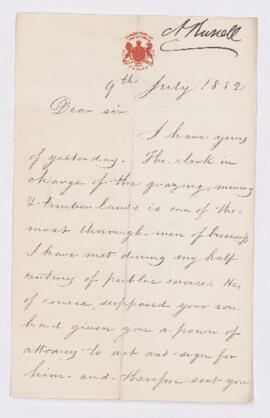 A Russell
9th July 1882
Dear sir
I have yours
of yesterday. The clerk in
charge of the grazing, mining
& timber lands is one of the
most thorough men of business
I have met during my half
century of public service. He
of course, supposed your son
had given you a power of
attorney to act and sign for
him - and therefore sent you